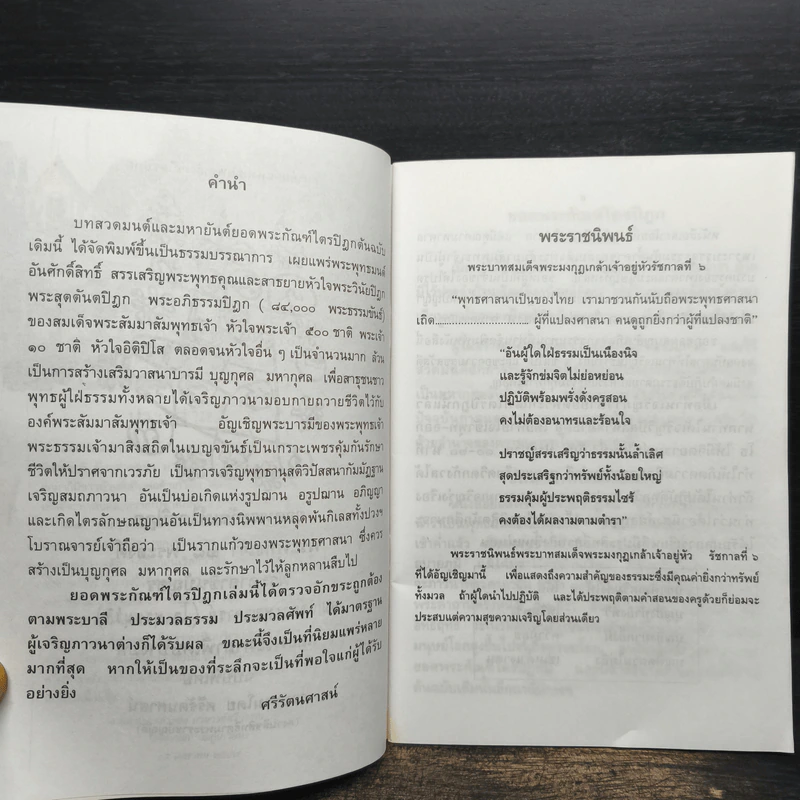 คำนำ
บทสวดมนต์และมหายันต์ยอดพระกัณฑ์ไตรปิฎกต้นฉบับ
เดิมนี้ ได้จัดพิมพ์ขึ้นเป็นธรรมบรรณาการ เผยแพร่พระพุทธมนต์
อันศักดิ์สิทธิ์ สรรเสริญพระพุทธคุณและสาธยายหัวใจพระวินัยปิฎก
พระสุตตันตปิฎก พระอภิธรรมปิฎก ( ๘๔,๐๐๐ พระธรรมขันธ์)
ของสมเด็จพระสัมมาสัมพุทธเจ้า หัวใจพระเจ้า ๕๐๐ ชาติ พระเจ้า
๑๐ ชาติ หัวใจอิติปิโส ตลอดจนหัวใจอื่น ๆ เป็นจำนวนมาก ล้วน
เป็นการสร้างเสริมวาสนาบารมี บุญกุศล มหากุศล เพื่อสาธุชนชาว
พุทธผู้ใฝ่ธรรมทั้งหลายได้เจริญภาวนามอบกายถวายชีวิตไว้กับ
องค์พระสัมมาสัมพุทธเจ้า อัญเชิญพระบารมีของพระพุทธเจ้า
พระธรรมเจ้ามาสิงสถิตในเบญจขันธ์เป็นเกราะเพชรคุ้มกันรักษา
ชีวิตให้ปราศจากเวรภัย เป็นการเจริญพุทธานุสติวิปัสสนากัมมัฏฐาน
เจริญสมถภาวนา อันเป็นบ่อเกิดแห่งรูปฌาน อรูปฌาน อภิญญา
และเกิดไตรลักษณญานอันเป็นทางนิพพานหลุดพ้นกิเลสทั้งปวงฯ
โบราณจารย์เจ้าถือว่า เป็นรากแก้วของพระพุทธศาสนา ซึ่งควร
สร้างเป็นบุญกุศล มหากุศล และรักษาไว้ให้ลูกหลานสืบไป
ยอดพระกัณฑ์ไตรปิฎกเล่มนี้ได้ตรวจอักขระถูกต้อง
ตามพระบาลี ประมวลธรรม ประมวลศัพท์ ได้มาตรฐาน
ผู้เจริญภาวนาต่างก็ได้รับผล ขณะนี้จึงเป็นที่นิยมแพร่หลาย
มากที่สุด หากให้เป็นของที่ระลึกจะเป็นที่พอใจแก่ผู้ได้รับ
อย่างยิ่ง
ศรีรัตนศาสน์
พระราชนิพนธ์
พระบาทสมเด็จพระมงกุฎเกล้าเจ้าอยู่หัวรัชกาลที่ ๖
"พุทธศาสนาเป็นของไทย เรามาชวนกันนับถือพระพุทธศาสนา
เถิด................................ ผู้ที่แปลงศาสนา คนดูถูกยิ่งกว่าผู้ที่แปลงชาติ"
"อันผู้ใดใฝ่ธรรมเป็นเนืองนิจ
และรู้จักข่มจิตไม่ย่อหย่อน
ปฏิบัติพร้อมพรั่งดั่งครูสอน
คงไม่ต้องอนาทรและร้อนใจ
ปราชญ์สรรเสริญว่าธรรมนั้นล้ำเลิศ
สุดประเสริฐกว่าทรัพย์ทั้งน้อยใหญ่
ธรรมคุ้มผู้ประพฤติธรรมไซร้
คงต้องได้ผลงามตามตำรา"
พระราชนิพนธ์พระบาทสมเด็จพระมงกุฎเกล้าเจ้าอยู่หัว รัชกาลที่ ๖
ที่ได้อัญเชิญมานี้ เพื่อแสดงถึงความสำคัญของธรรมะซึ่งมีคุณค่ายิ่งกว่าทรัพย์
ทั้งมวล ถ้าผู้ใดนำไปปฏิบัติ และได้ประพฤติตามคำสอนของครูด้วยก็ย่อมจะ
ประสบแต่ความสุขความเจริญโดยส่วนเดียว